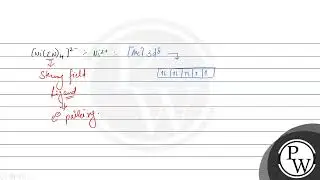 [Ni(CN)4]2- :- Ni2+ : [Ar] 3d8 →
Strong field
Ligand
e- pairing.
PW